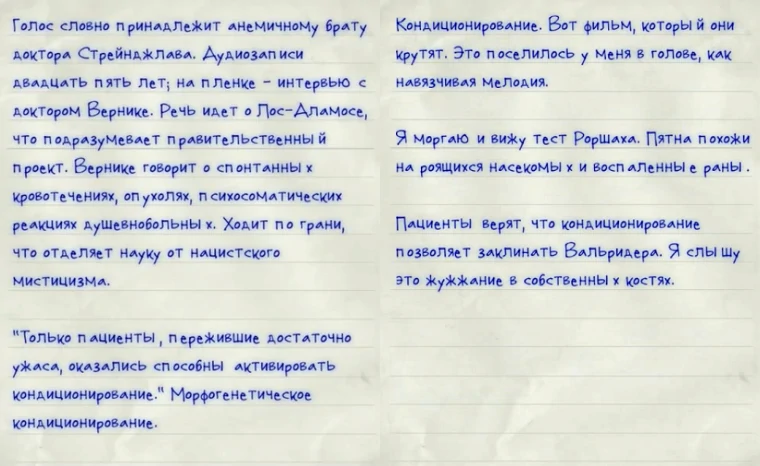 Голос словно принадлежит анемичному брату
доктора Стрейнджлава. Аудиозаписи
двадцать пять лет; на пленке - интервью с
доктором Вернике. Речь идет о Лос-Аламосе,
что подразумевает правительственный
проект. Вернике говорит о спонтанных
кровотечениях, опухолях, психосоматических
реакциях душевнобольных. Ходит по грани,
что отделяет науку от нацистского
мистицизма.
"Только пациенты, пережившие достаточно
ужаса, оказались способны активировать
кондиционирование." Морфогенетическое
кондиционирование.
Кондиционирование. Вот фильм, который они
крутят. Это поселилось у меня в голове, как
навязчивая мелодия.
Я моргаю и вижу тест Роршаха. Пятна похожи
на роящихся насекомых и воспаленные раны.
Пациенты верят, что кондиционирование
позволяет заклинать Вальридера. Я слышу
это жужжание в собственных костях.